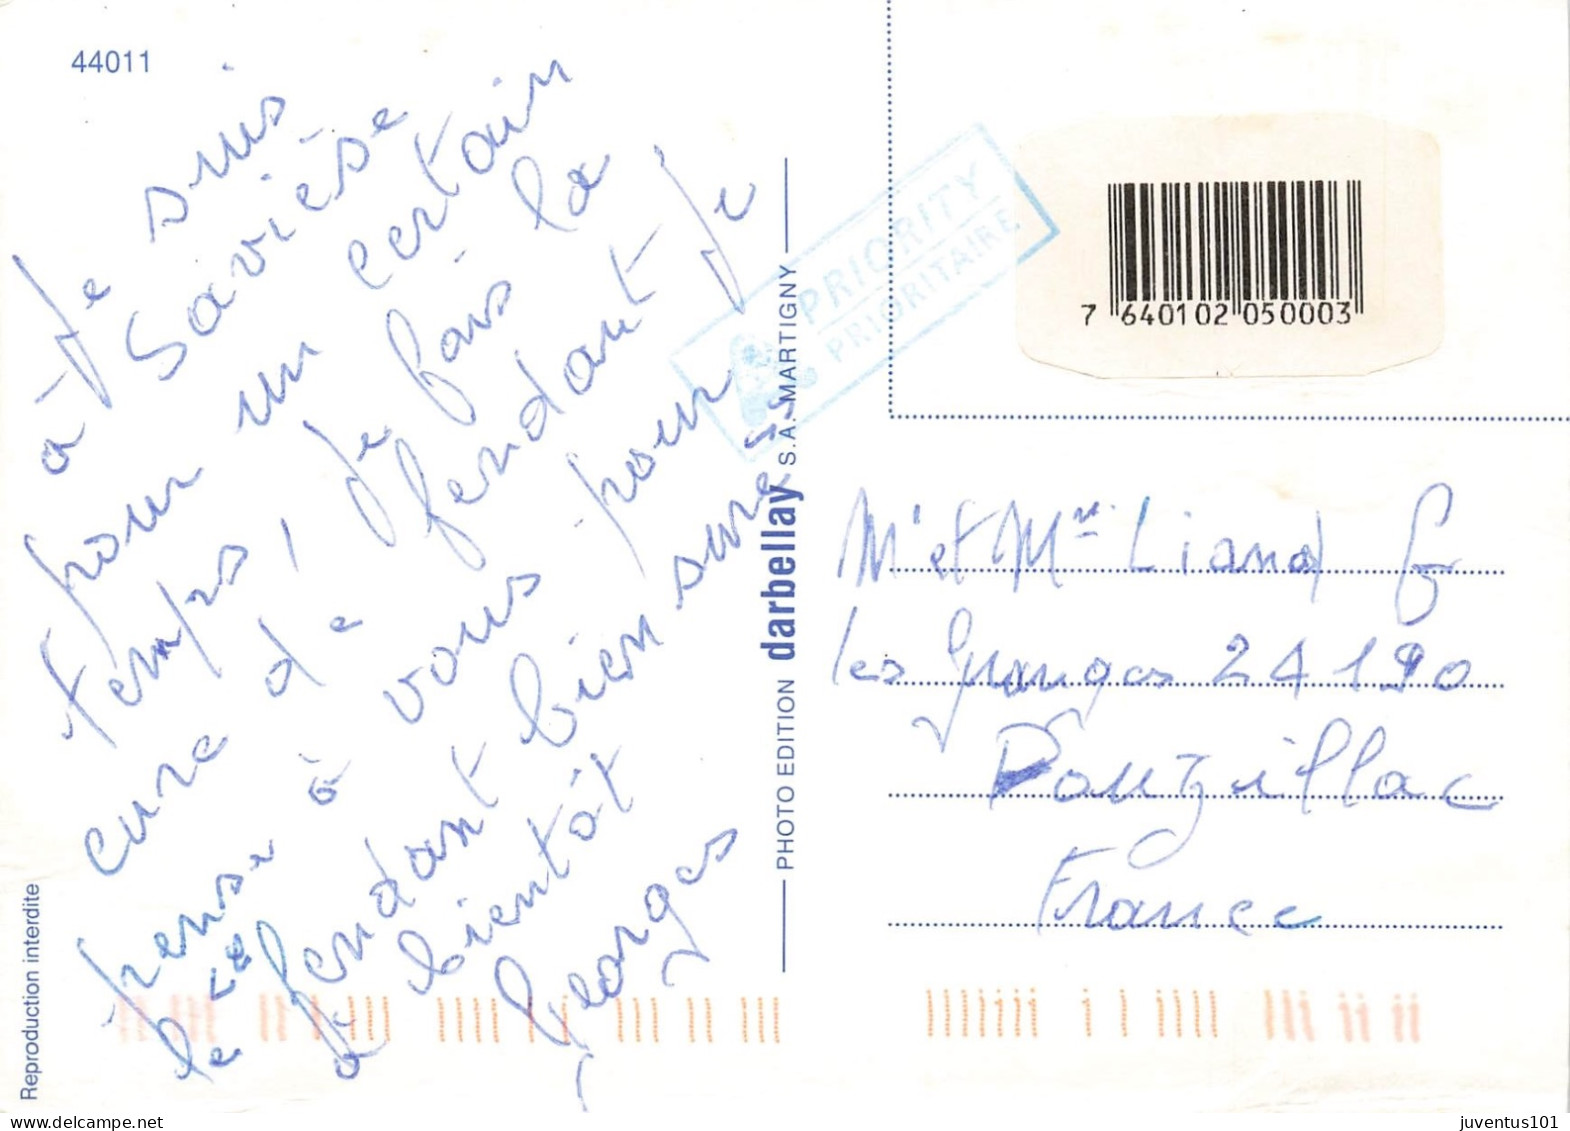 44011
Je suis
à Savièse
pour un certain
temps, je fais la
cure de fendant je
pense à vous pour
le fendant bien sur
à bientôt
Georges
Reproduction interdite
PHOTO EDITION darbellay S.A. MARTIGNY
PRIORITY
PRIORITAIRE
7 640102 050003
Mr et Mme Liand G
les granges 24190
Douzillac
France
delcampe.net
juventus101